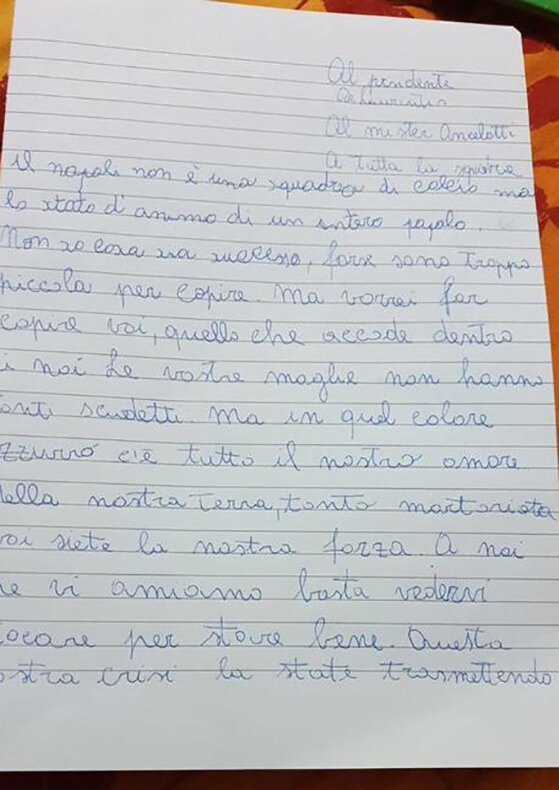 Al prndente
De Laurentis
Al mister Ancelotti
A tutta la squadra
il napoli non è una squadra di calcio ma
lo stato d'animo di un intero popolo.
Non so cosa sia successo, forse sono troppo
piccola per capire. Ma vorrei far
capire voi, quello che accade dentro
i noi Le vostre maglie non hanno
anti scudetti. Ma in quel colore
zzurro c'è tutto il nostro amore
della nostra terra, tanto martoriata
voi siete la nostra forza. A noi
he vi amiamo basta vedervi
iocare per stare bene. Questa
ostra crisi la state trasmettendo